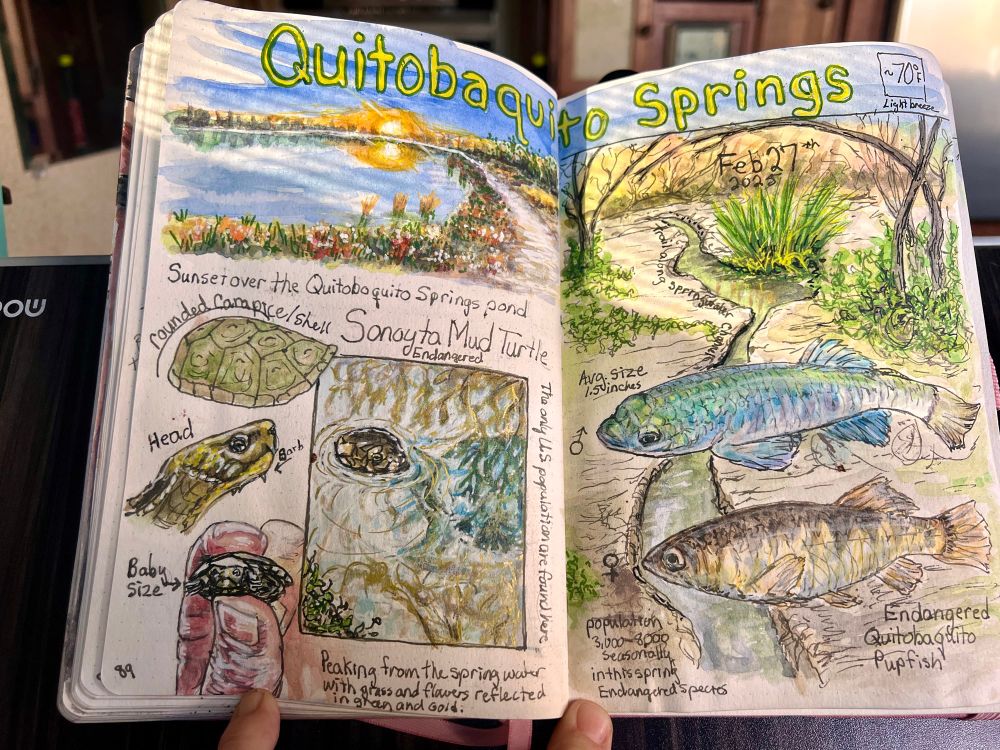 Quitobaquito Springs
~70°F
Light breeze
Feb 27th
2022
Sunset over the Quitobaquito Springs pond
Rounded Carapice/shell
Sonoyta Mud Turtle
Endangered
The only U.S population are found here
Head
Barb
Baby
Size
89
Peaking from the spring water
with grass and flowers reflected
in green and Gold.
spring water channel
Avg. size
1.5 inches
♂
♀
population
3,000-8,000
seasonally
in this spring
Endangered species
Endangered
Quitobaquito
Pupfish